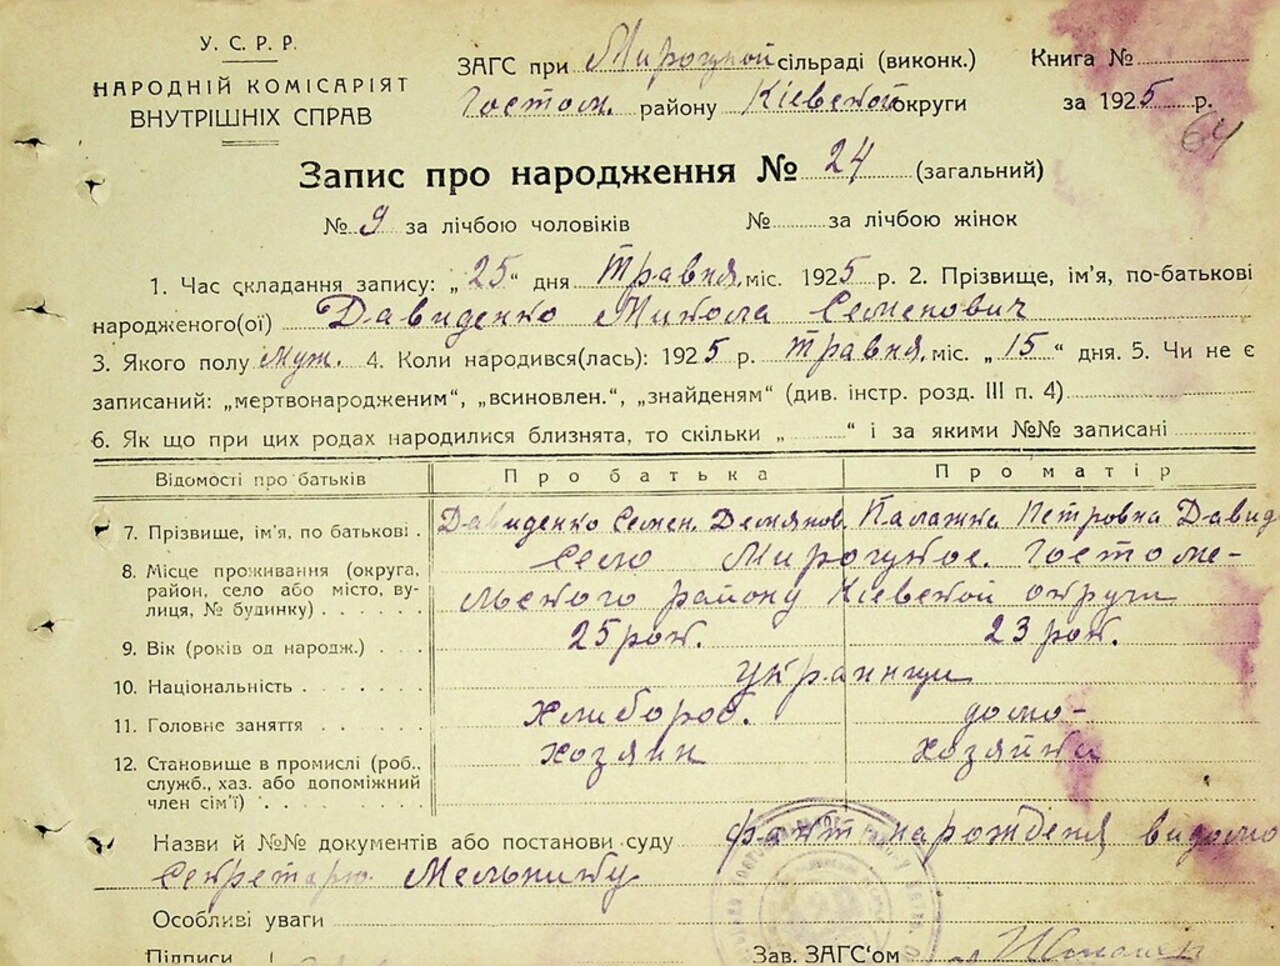 У. С. Р. Р.
НАРОДНІЙ КОМІСАРІЯТ
ВНУТРІШНІХ СПРАВ
ЗАГС при Мироцкой сільраді (виконк.) Книга №
Гостом. району Кіевской округи за 1925 р.
64
Запис про народження № 24 (загальний)
№ 9 за лічбою чоловіків № за лічбою жінок
1. Час складання запису: „25“ дня Травня міс. 1925 р. 2. Прізвище, ім'я, по-батькові
народженого(ої) Давиденко Микола Семенович
3. Якого полу Муж. 4. Коли народився(лась): 1925 р. Травня, міс. „15“ дня. 5. Чи не є
записаний: „мертвонародженим“, „всиновлен.“, „знайденям“ (див. інстр. розд. III п. 4)
6. Як що при цих родах народилися близнята, то скільки „ “ і за якими №№ записані
Відомості про батьків Про батька Про матір
7. Прізвище, ім'я, по батькові Давиденко Семен. Демянов. Палажка Петровна Давид
8. Місце проживання (округа, район, село або місто, вулиця, № будинку) Село Мироцькое. Гостоме-
льского району Кіевской округи
9. Вік (років од народж.) 25 рок. 23 рок.
10. Національність украинци
11. Головне заняття Хлибороб. домо-
12. Становище в промислі (роб., служб., хаз. або допоміжний член сім'ї) хозяин хозяйка
Назви й №№ документів або постанови суду факт нарожденя видомо
Секретарю Мельнику
Особливі уваги
Підписи Зав. ЗАГС'ом